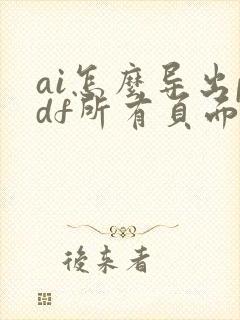 ai怎麼导出p
df所有页面
後来者